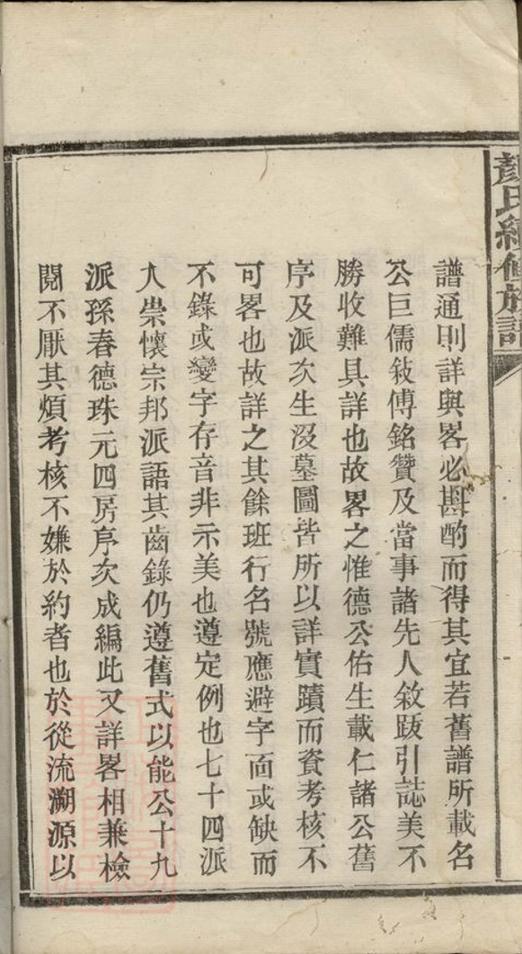 顏氏續修族譜
譜通則詳與畧必斟酌而得其宜若舊譜所載名
公巨儒敍傳銘贊及當事諸先人敘跋引誌美不
勝收難具詳也故畧之惟德公佑生載仁諸公舊
序及派次生沒墓圖皆所以詳實蹟而資考核不
可畧也故詳之其餘班行名號應避字面或缺而
不錄或變字存音非示美也遵定例也七十四派
人崇懷宗邦派語其齒錄仍遵舊式以能公十九
派孫春德珠元四房序次成編此又詳畧相兼檢
閱不厭其煩考核不嫌於約者也於從流溯源以